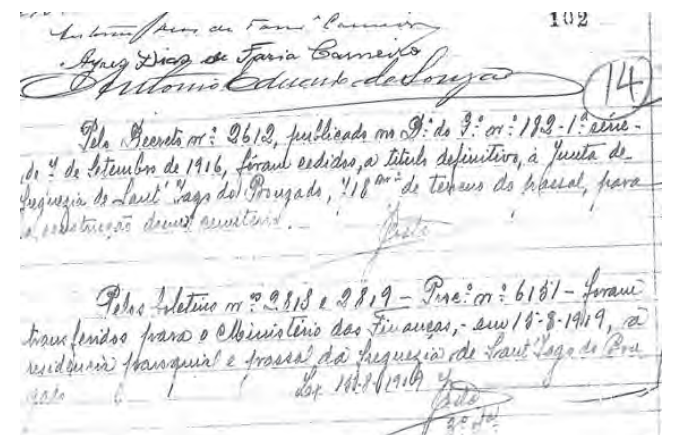 102
Antonio Dias de Faria Carneiro
Aynes Dias de Faria Carneiro
Antonio Eduardo de Souza
14
Pelo Decreto nº: 2612, publicado no D: do G: nº: 182-1ª série-
de 7 de Setembro de 1916, foram cedidos, a titulo definitivo, á Junta de
freguezia de Sant'Iago do Bougado, 718 m² de terreno do passal, para
a construcção dum cemitério.
Pelos boletins nº 2818 e 2819 - Proc: nº: 6151 - foram
transferidos para o Ministério das Finanças, - em 15-8-1919, a
residencia paroquial e passal da freguezia de Sant'Iago do Bou
gado